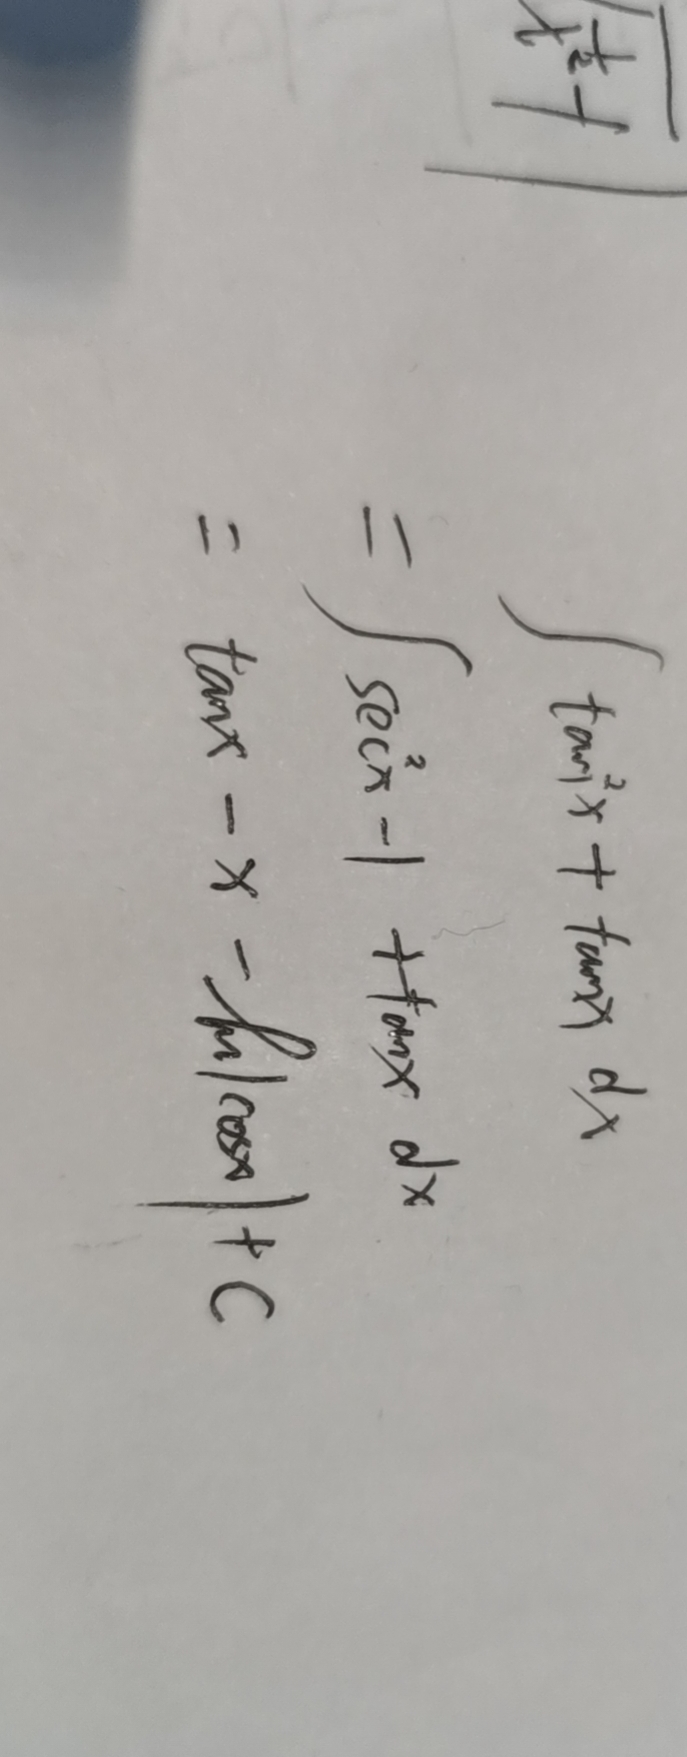 ∫ tan²x + tanx dx
= ∫ sec²x - 1 + tanx dx
= tanx - x - ln|cosx| + C